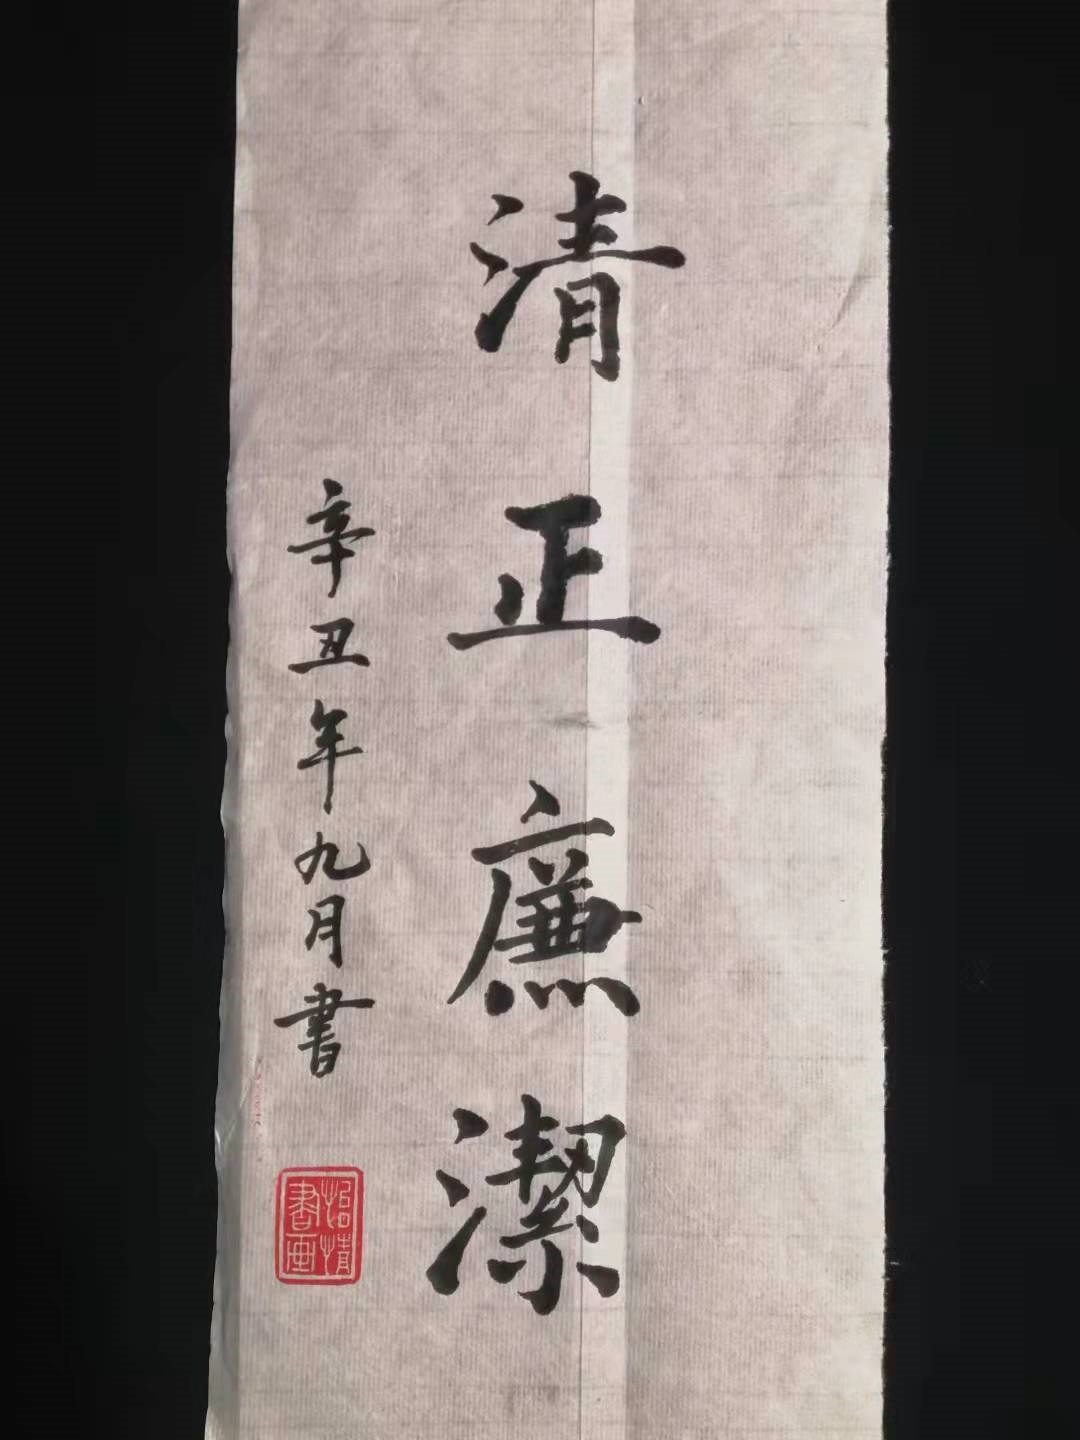 清正廉潔
辛丑年九月書
怡情書画